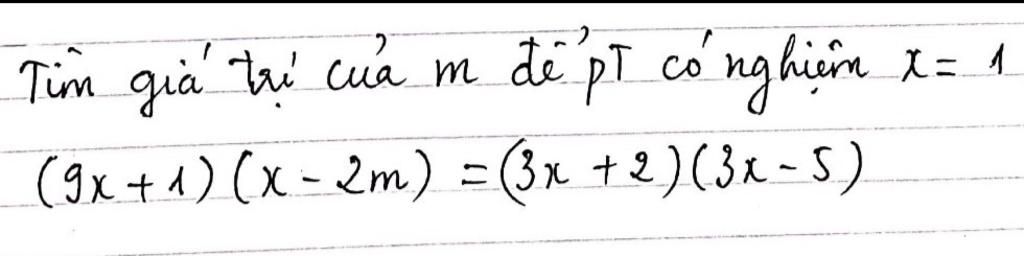 Tìm giá trị của m để pT có nghiệm x = 1
(9x + 1)(x - 2m) = (3x + 2)(3x - 5)